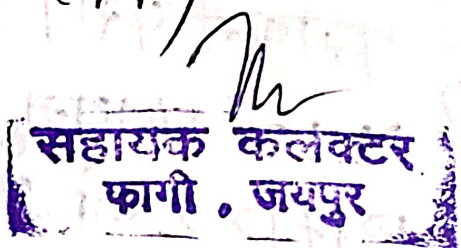 सहायक कलक्टर
फागी , जयपुर